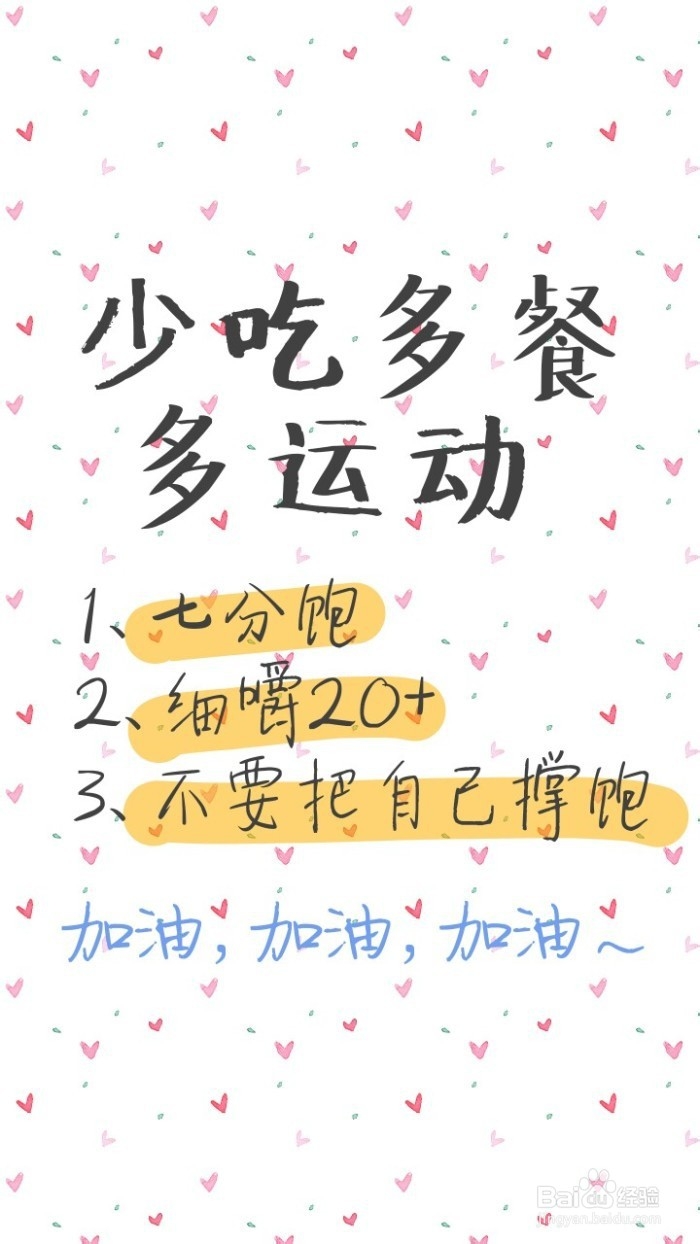 少吃多餐
多运动
1、七分饱
2、细嚼20+
3、不要把自己撑饱
加油,加油,加油~
Baidu经验
jingyan.baidu.com